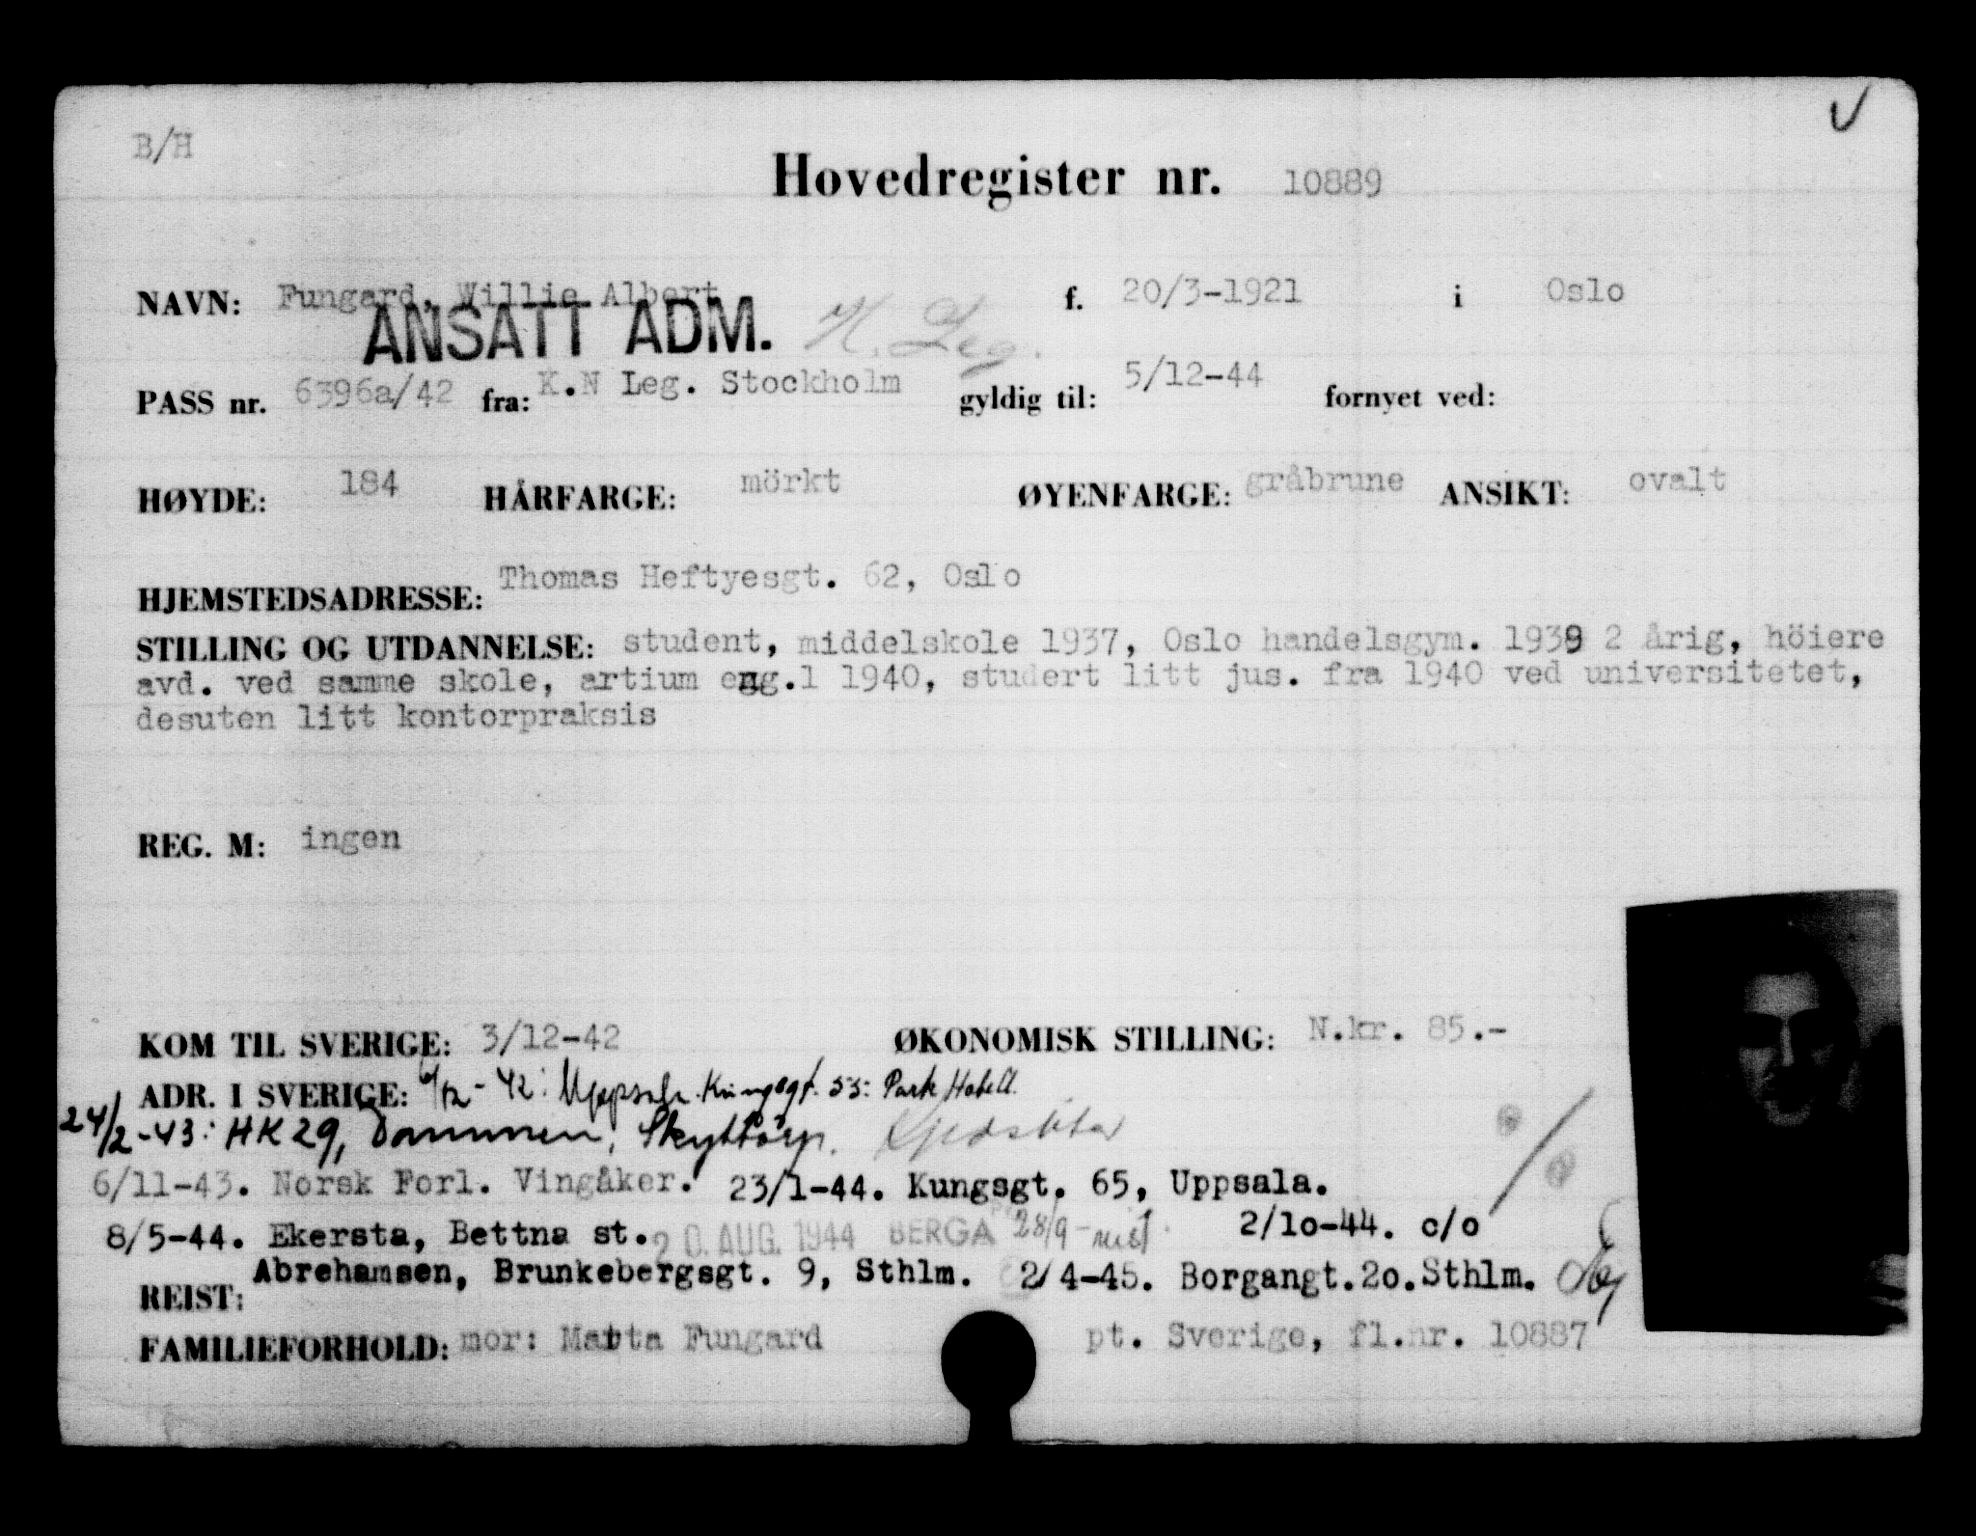 B/H
Hovedregister nr. 10889
NAVN: Fungard, Willie Albert f. 20/3-1921 i Oslo
ANSATT ADM. N. Leg.
PASS nr. 6396a/42 fra: K.N Leg. Stockholm gyldig til: 5/12-44 fornyet ved:
HØYDE: 184 HÅRFARGE: mörkt ØYENFARGE: gråbrune ANSIKT: ovalt
HJEMSTEDSADRESSE: Thomas Heftyesgt. 62, Oslo
STILLING OG UTDANNELSE: student, middelskole 1937, Oslo handelsgym. 1939 2 årig, höiere
avd. ved samme skole, artium eng.l 1940, studert litt jus. fra 1940 ved universitetet,
desuten litt kontorpraksis
REG. M: ingen
KOM TIL SVERIGE: 3/12-42 ØKONOMISK STILLING: N.kr. 85.-
ADR. I SVERIGE: 6/12-42: Uppsala. Kungsgt. 53: Park Hotell.
24/2-43: HK 29, Dammen, Skyttorp.
6/11-43. Norsk Forl. Vingåker. 23/1-44. Kungsgt. 65, Uppsala.
8/5-44. Ekersta, Bettna st. 20. AUG. 1944 BERGA 28/9- 2/10-44. c/o
Abrehamsen, Brunkebergsgt. 9, Sthlm. 2/4-45. Borgangt.20.Sthlm.
REIST:
FAMILIEFORHOLD: mor: Marta Fungard pt. Sverige, fl.nr. 10887